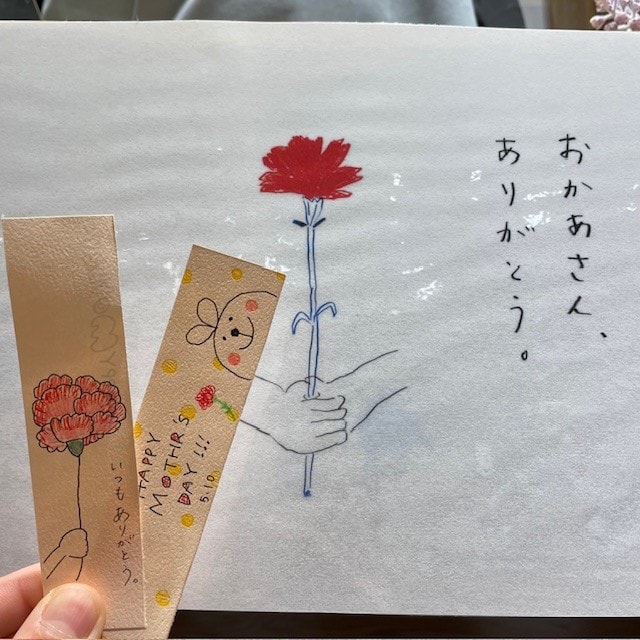 おかあさん、
ありがとう。
いつもありがとう。
HAPPY
MOTHR'S
DAY!!!
5.10